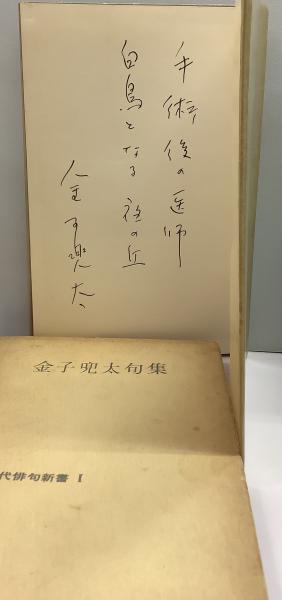 手術後の医師
白鳥となる夜の丘
金子兜太
金子兜太句集
代俳句新書 I